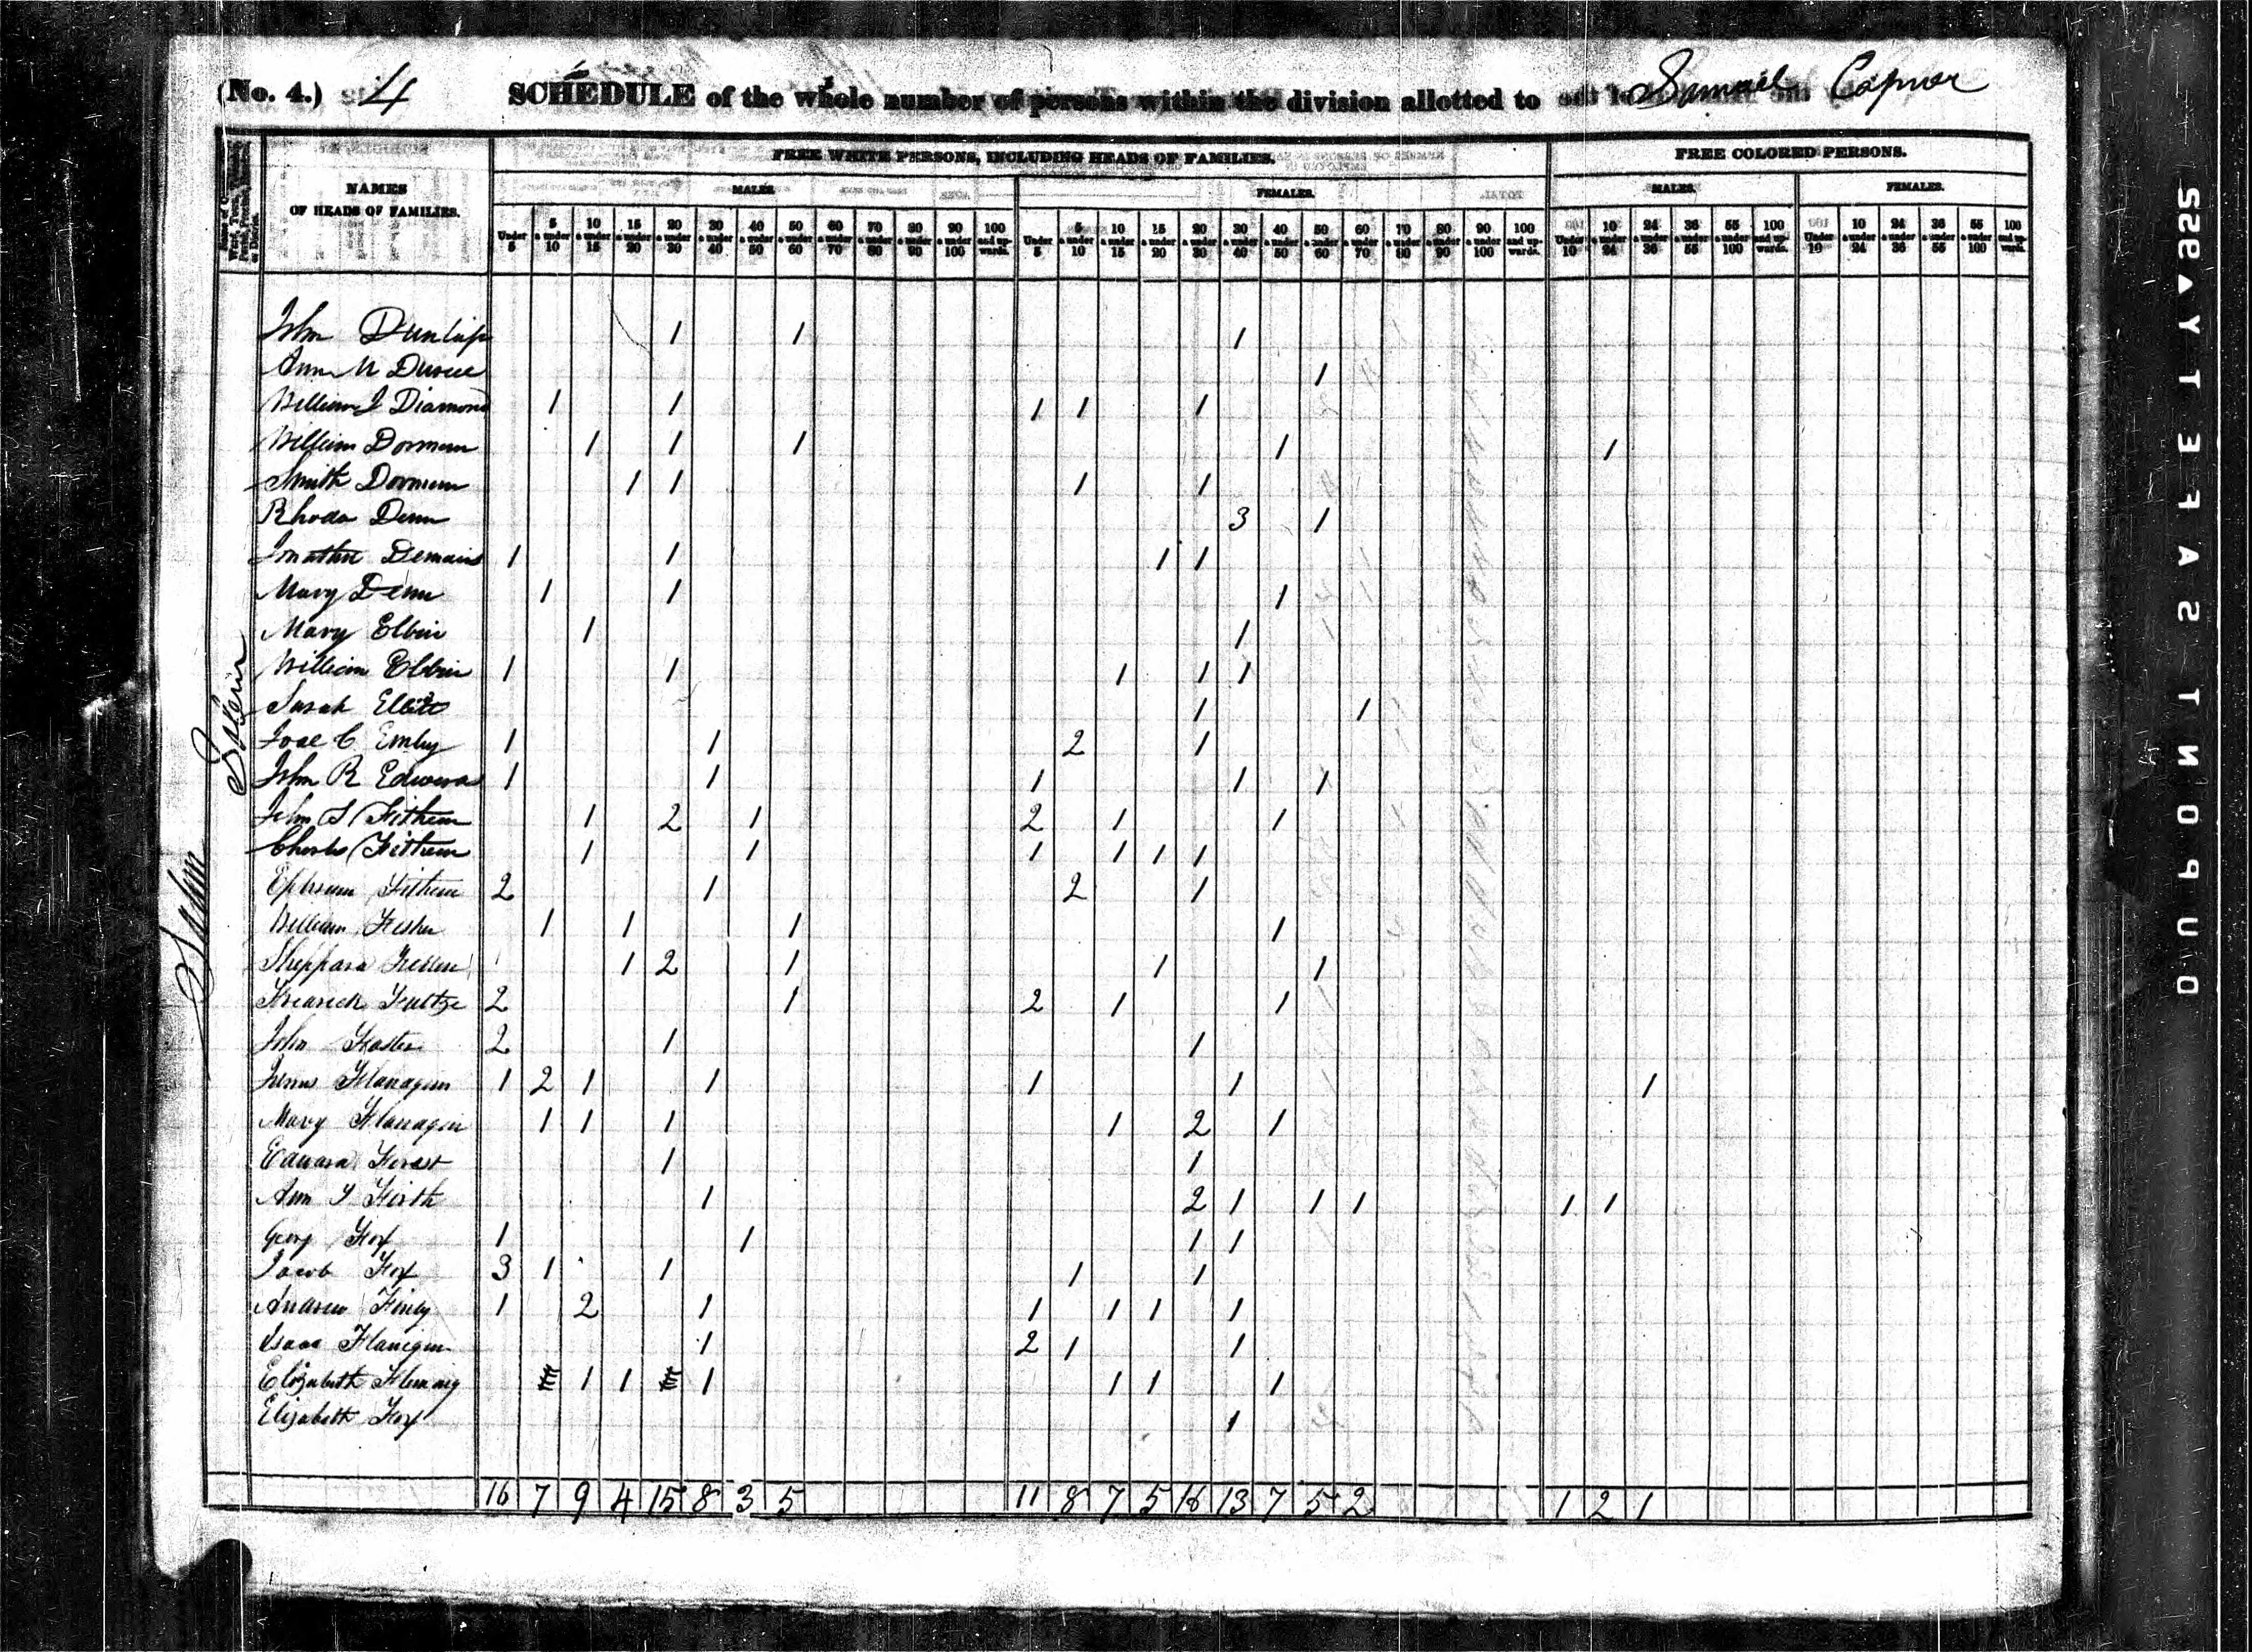 (No. 4.) 4 SCHEDULE of the whole number of persons within the division allotted to Samuel Copner
FREE WHITE PERSONS, INCLUDING HEADS OF FAMILIES. FREE COLORED PERSONS.
NAMES OF HEADS OF FAMILIES. MALES. FEMALES. MALES. FEMALES.
Under 5 5 & under 10 10 & under 15 15 & under 20 20 & under 30 30 & under 40 40 & under 50 50 & under 60 60 & under 70 70 & under 80 80 & under 90 90 & under 100 100 and upwards. Under 5 5 & under 10 10 & under 15 15 & under 20 20 & under 30 30 & under 40 40 & under 50 50 & under 60 60 & under 70 70 & under 80 80 & under 90 90 & under 100 100 and upwards. Under 10 10 & under 24 24 & under 36 36 & under 55 55 & under 100 100 and upwards. Under 10 10 & under 24 24 & under 36 36 & under 55 55 & under 100 100 and upward.
John Dunlap 1 1 1
Ann 1
William J Diamond 1 1 1 1 1
William Dorman 1 1 1 1 1
Smith Dorman 1 1 1 1
Rhoda Denn 3 1
Demaris 1 1 1 1
Mary Denn 1 1 1
Mary Elbin 1 1
William Elbin 1 1 1 1 1
Sarah 1 1
C Emley 1 1 2 1
John R Edwards 1 1 1 1 1
John S Fithen 1 2 1 2 1 1
Charles Fithen 1 1 1 1 1 1
Ephraim Fithen 2 1 2 1
William Fisher 1 1 1 1
Sheppard 1 2 1 1 1
Fredrick 2 1 2 1 1
John Foster 2 1 1
Flanagan 1 2 1 1 1 1 1
Mary Flanagin 1 1 1 1 2 1
Edward Forest 1 1
Ann Firth 1 2 1 1 1 1 1
Georg Fox 1 1 1 1
Jacob Fox 3 1 1 1 1
Andrew Finley 1 2 1 1 1 1 1
Isaac Flanegen 1 2 1 1
Elizabeth Fleming 1 1 1 1 1 1
Elizabeth Fox 1
Salem
Salem
16 7 9 4 15 8 3 5 11 8 7 5 16 13 7 5 2 1 2 1
DUPONT SAFETY ▲ S22